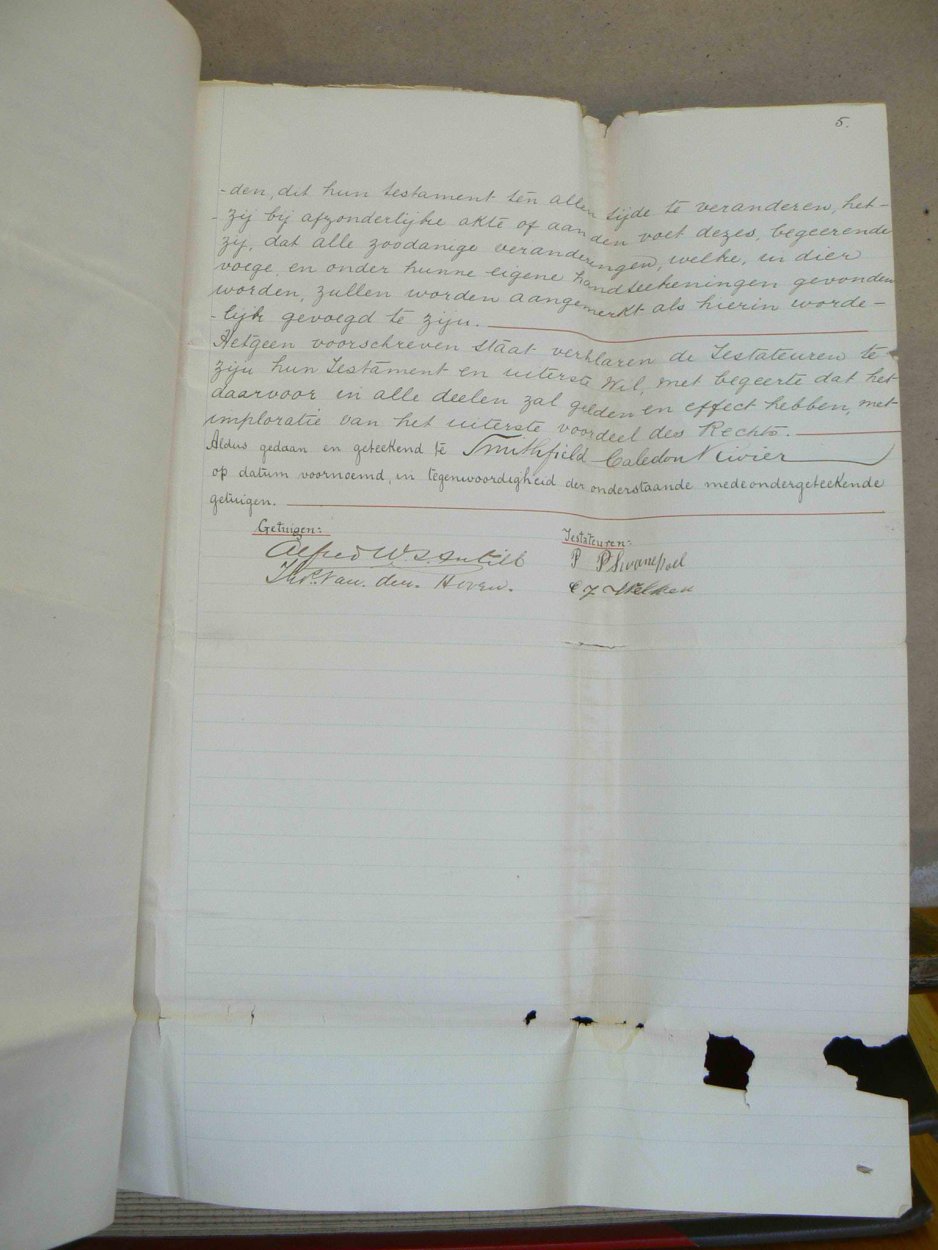 5.
-den, dit hun testament ten allen tijde te veranderen, het-
-zij bij afzonderlijke akte of aan den voet dezes, begeerende
zij, dat alle zoodanige veranderingen, welke, in dier
voege, en onder hunne eigene handteekeningen gevonden
worden, zullen worden aangemerkt als hierin worde-
-lijk gevoegd te zijn.
Hetgeen voorschreven staat verklaren de Testateuren te
zijn hun Testament en uiterste Wil, met begeerte dat het
daarvoor in alle deelen zal gelden en effect hebben, met
imploratie van het uiterste voordeel des Rechts.
Aldus gedaan en geteekend te Smithfield Caledon Rivier
op datum voornoemd, in tegenwoordigheid der onderstaande medeondergeteekende
getuigen.
Getuigen: Testateuren:
Alfred W. S. P Swanepoel
van den Hoven. C J